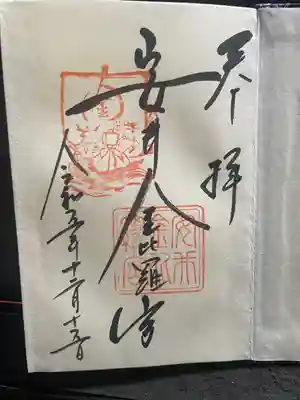 奉拝
安井金比羅宮
令和五年十二月十五日